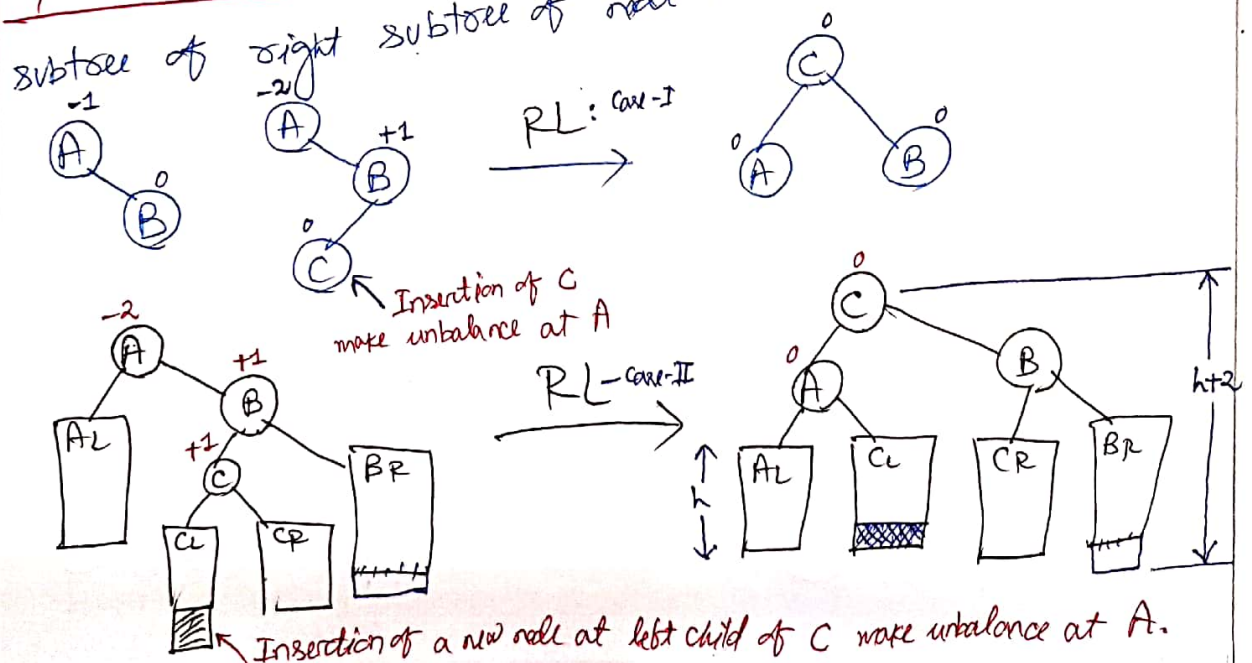 subtree of right subtree of node
-1
A
0
B
-2
A
+1
B
0
C
RL: Case-I
0
C
0
A
0
B
Insertion of C
make unbalance at A
-2
A
+1
B
+1
C
AL
BR
CL
CR
RL-Case-II
0
C
0
A
B
h+2
h
AL
CL
CR
BR
Insertion of a new node at left child of C make unbalance at A.